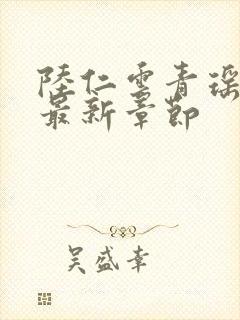 陸仁雲青瑶
最新章節
吴盛幸